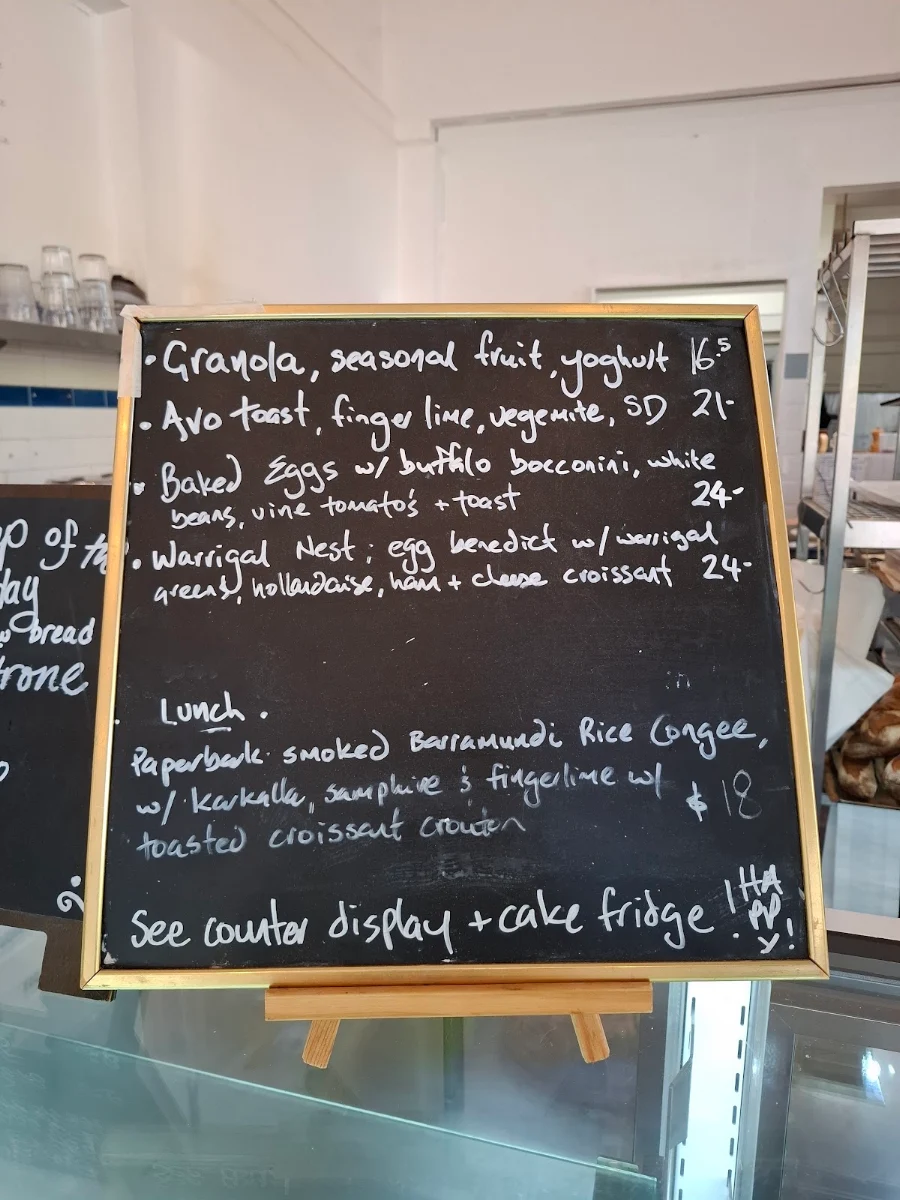 • Granola, seasonal fruit, yoghurt 16.5
• Avo toast, finger lime, vegemite, SD 21-
• Baked Eggs w/ buffalo bocconini, white
beans, vine tomato's + toast 24-
• Warrigal Nest; egg benedict w/ warrigal
greens, hollandaise, ham + cheese croissant 24-
Lunch.
Paperbark smoked Barramundi Rice Congee,
w/ karkalla, samphire & fingerlime w/
toasted croissant crouton $18
See counter display + cake fridge!
! HA
PP
Y!
p of the
day
bread
trone